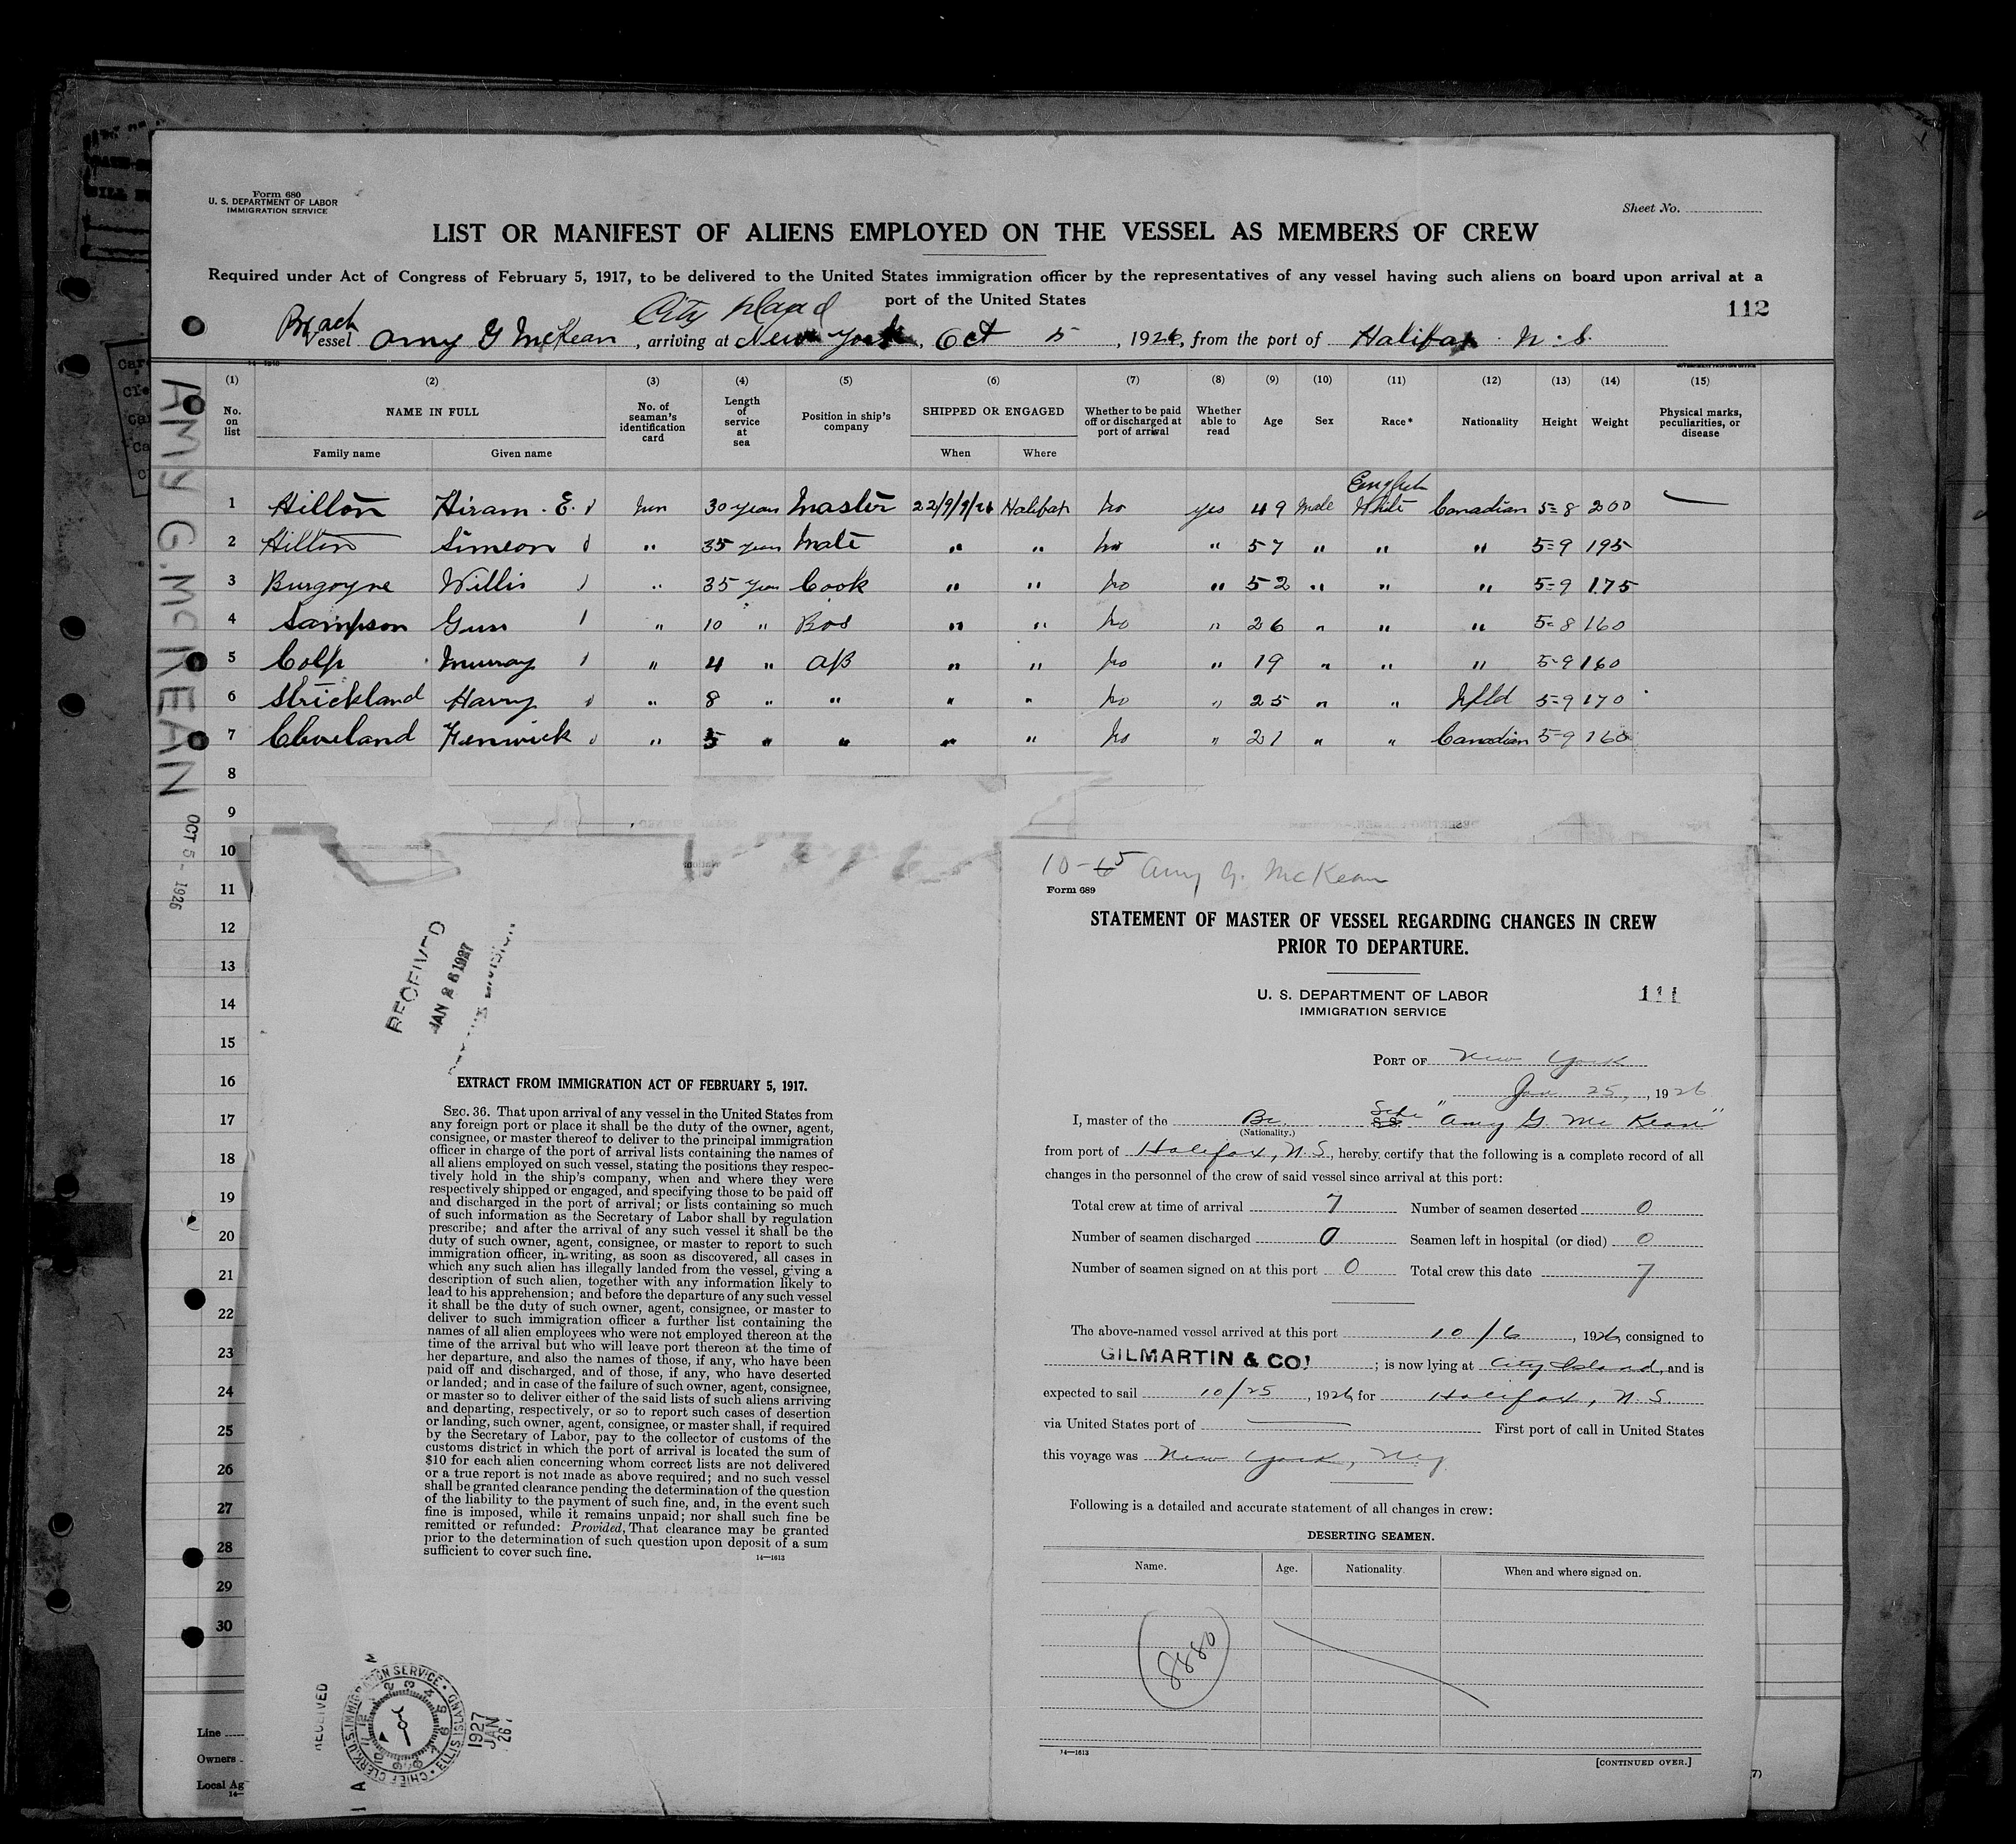 Form 680
U. S. DEPARTMENT OF LABOR
IMMIGRATION SERVICE
Sheet No.
LIST OR MANIFEST OF ALIENS EMPLOYED ON THE VESSEL AS MEMBERS OF CREW
Required under Act of Congress of February 5, 1917, to be delivered to the United States immigration officer by the representatives of any vessel having such aliens on board upon arrival at a
port of the United States
112
City Island
Vessel Amy G McKean, arriving at New York, Oct 5, 1926, from the port of Halifax N. S.
(1) (2) (3) (4) (5) (6) (7) (8) (9) (10) (11) (12) (13) (14) (15)
No. on list NAME IN FULL No. of seaman's identification card Length of service at sea Position in ship's company SHIPPED OR ENGAGED Whether to be paid off or discharged at port of arrival Whether able to read Age Sex Race* Nationality Height Weight Physical marks, peculiarities, or disease
Family name Given name When Where
English
1 Hilton Hiram. E. 30 years Master 22/9/9/26 Halifax no yes 49 Male White Canadian 5=8 200 —
2 Hilton Simeon " 35 years Mate " " no " 57 " " " 5=9 195
3 Burgoyne Willis " 35 years Cook " " no " 52 " " " 5=9 175
4 Sampson Gus " 10 " Bos " " no " 26 " " " 5=8 160
5 Colp Murray " 4 " AB " " no " 19 " " " 5-9 160
6 Strickland Harry " 8 " " " " no " 25 " " Nfld 5=9 170
7 Cleveland Fenwick " 5 " " " " no " 21 " " Canadian 5-9 160
8
9
10
11
12
13
14
15
16
17
18
19
20
21
22
23
24
25
26
27
28
29
30
AMY G. McKEAN
OCT 5 - 1926
Line
Owners
Local Ag
RECEIVED
JAN 26 1927
DIVISION
EXTRACT FROM IMMIGRATION ACT OF FEBRUARY 5, 1917.
SEC. 36. That upon arrival of any vessel in the United States from
any foreign port or place it shall be the duty of the owner, agent,
consignee, or master thereof to deliver to the principal immigration
officer in charge of the port of arrival lists containing the names of
all aliens employed on such vessel, stating the positions they respec-
tively hold in the ship's company, when and where they were
respectively shipped or engaged, and specifying those to be paid off
and discharged in the port of arrival; or lists containing so much
of such information as the Secretary of Labor shall by regulation
prescribe; and after the arrival of any such vessel it shall be the
duty of such owner, agent, consignee, or master to report to such
immigration officer, in writing, as soon as discovered, all cases in
which any such alien has illegally landed from the vessel, giving a
description of such alien, together with any information likely to
lead to his apprehension; and before the departure of any such vessel
it shall be the duty of such owner, agent, consignee, or master to
deliver to such immigration officer a further list containing the
names of all alien employees who were not employed thereon at the
time of the arrival but who will leave port thereon at the time of
her departure, and also the names of those, if any, who have been
paid off and discharged, and of those, if any, who have deserted
or landed; and in case of the failure of such owner, agent, consignee,
or master so to deliver either of the said lists of such aliens arriving
and departing, respectively, or so to report such cases of desertion
or landing, such owner, agent, consignee, or master shall, if required
by the Secretary of Labor, pay to the collector of customs of the
customs district in which the port of arrival is located the sum of
$10 for each alien concerning whom correct lists are not delivered
or a true report is not made as above required; and no such vessel
shall be granted clearance pending the determination of the question
of the liability to the payment of such fine, and, in the event such
fine is imposed, while it remains unpaid; nor shall such fine be
remitted or refunded: Provided, That clearance may be granted
prior to the determination of such question upon deposit of a sum
sufficient to cover such fine.
14—1613
RECEIVED
CHIEF CLERK, U. S. IMMIGRATION SERVICE · ELLIS ISLAND
1927
JAN
26
10-5 Amy G. McKean
Form 689
STATEMENT OF MASTER OF VESSEL REGARDING CHANGES IN CREW
PRIOR TO DEPARTURE.
U. S. DEPARTMENT OF LABOR
IMMIGRATION SERVICE
111
PORT OF New York
Jan 25, 1926
I, master of the Br. Sch. "Amy G. McKean"
(Nationality.)
from port of Halifax, N. S., hereby certify that the following is a complete record of all
changes in the personnel of the crew of said vessel since arrival at this port:
Total crew at time of arrival 7 Number of seamen deserted 0
Number of seamen discharged 0 Seamen left in hospital (or died) 0
Number of seamen signed on at this port 0 Total crew this date 7
The above-named vessel arrived at this port 10/6, 1926, consigned to
GILMARTIN & CO.; is now lying at City Island, and is
expected to sail 10/25, 1926 for Halifax, N. S.
via United States port of — First port of call in United States
this voyage was New York, NY
Following is a detailed and accurate statement of all changes in crew:
DESERTING SEAMEN.
Name. Age. Nationality. When and where signed on.
8880
14—1613
[CONTINUED OVER.]